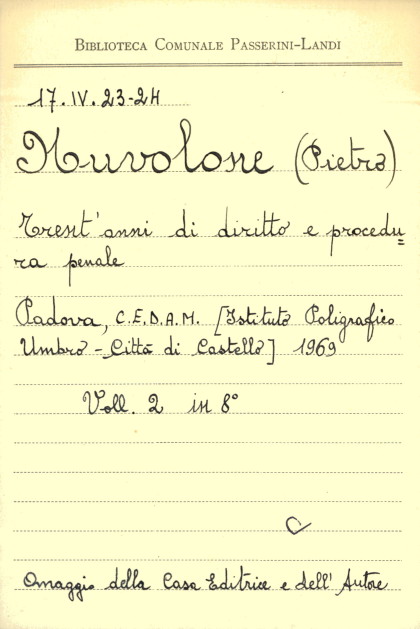 BIBLIOTECA COMUNALE PASSERINI-LANDI
17.IV.23-24
Nuvolone (Pietro)
Trent'anni di diritto e procedu=
ra penale
Padova, C.E.D.A.M. [Istituto Poligrafico
Umbro - Città di Castello] 1969
Voll. 2 in 8°
Omaggio della Casa Editrice e dell'Autore